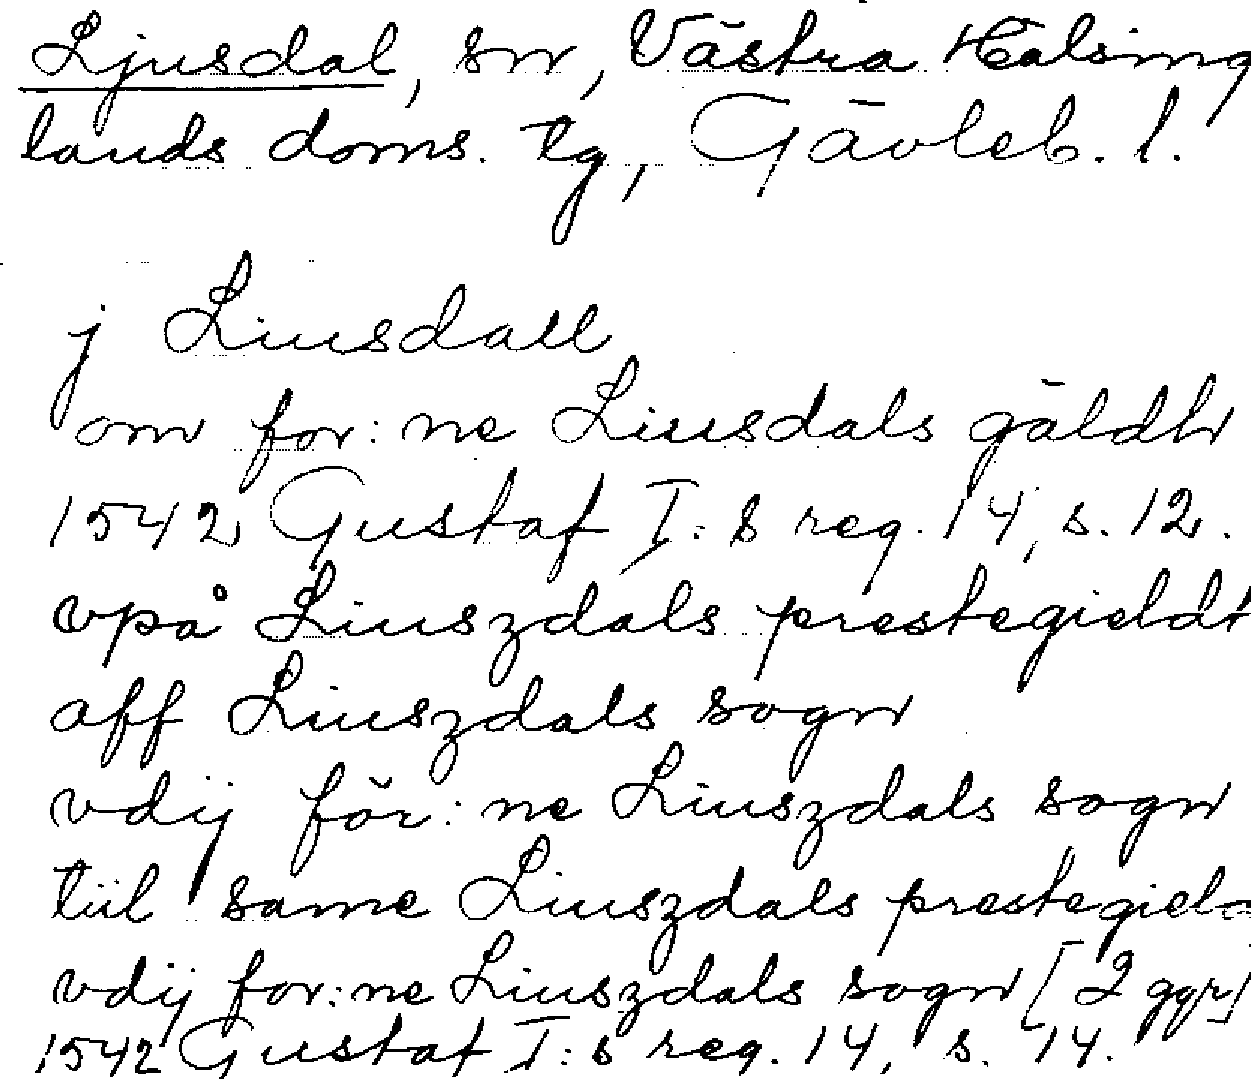 Ljusdal, sn, Västra Hälsing
lands doms. tg, Gävleb. l.
j Liusdall
om for:ne Liusdals gäldh
1542 Gustaf I:s reg. 14, s. 12.
vpå Liuszdals prestegieldt
aff Liuszdals sogn
vdij för:ne Liuszdals sogn
tiil same Liuszdals prestegield
vdij for:ne Liuszdals sogn [2 ggr]
1542 Gustaf I:s reg. 14, s. 14.